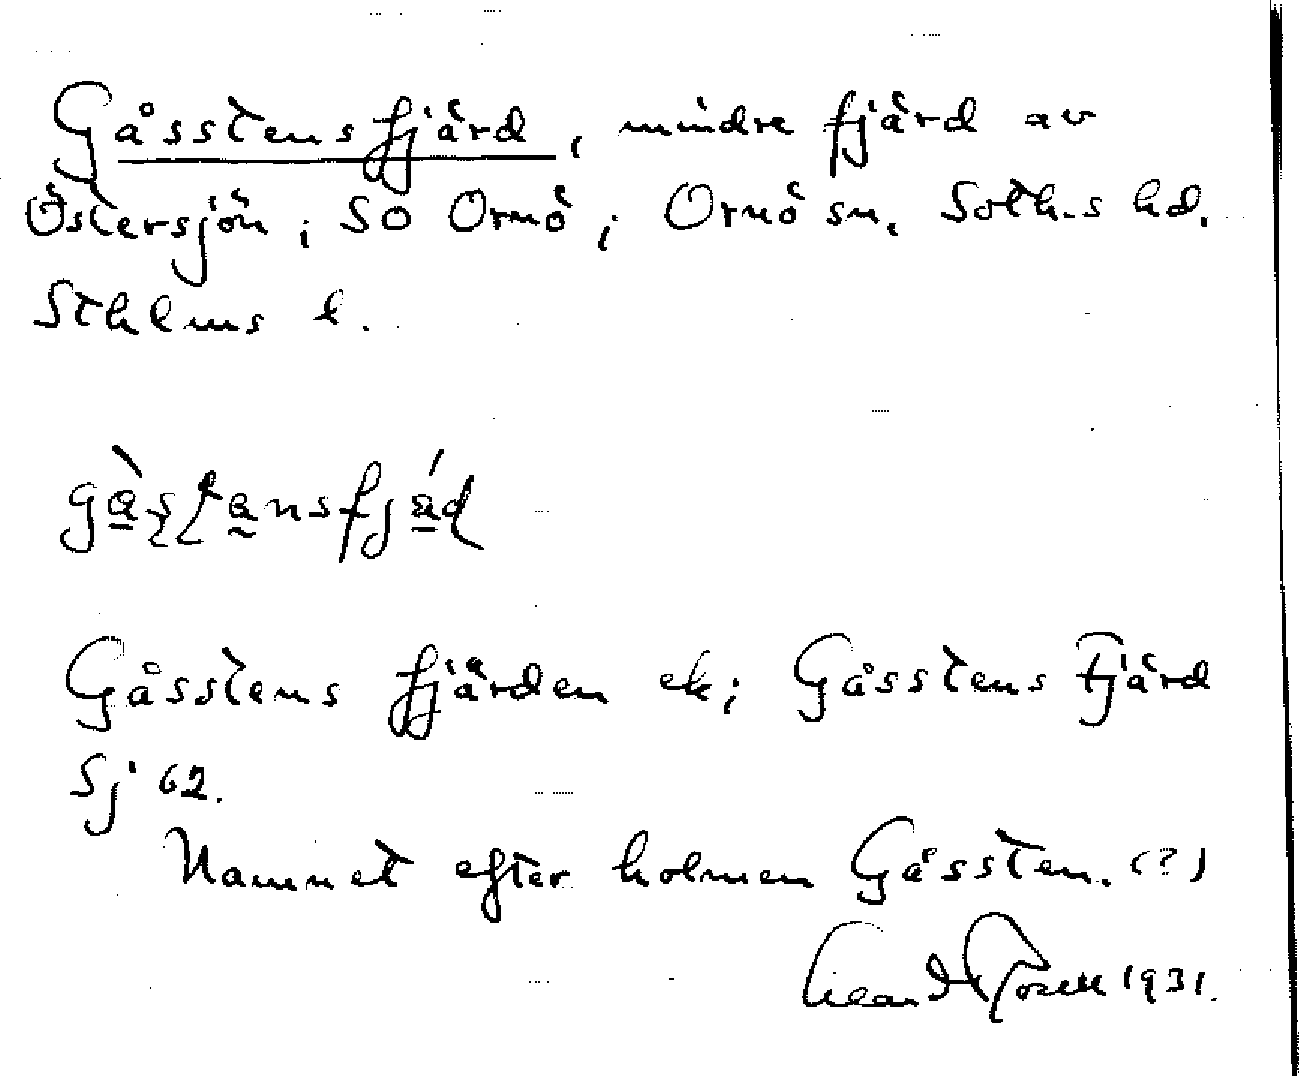 Gåsstensfjärd, mindre fjärd av
Östersjön; SO Ornö; Ornö sn. Soths hd.
Sthlms l.
Gåsstens fjärden ek; Gåsstens Fjärd
Sj 62.
Namnet efter holmen Gåssten. (?)
1931.